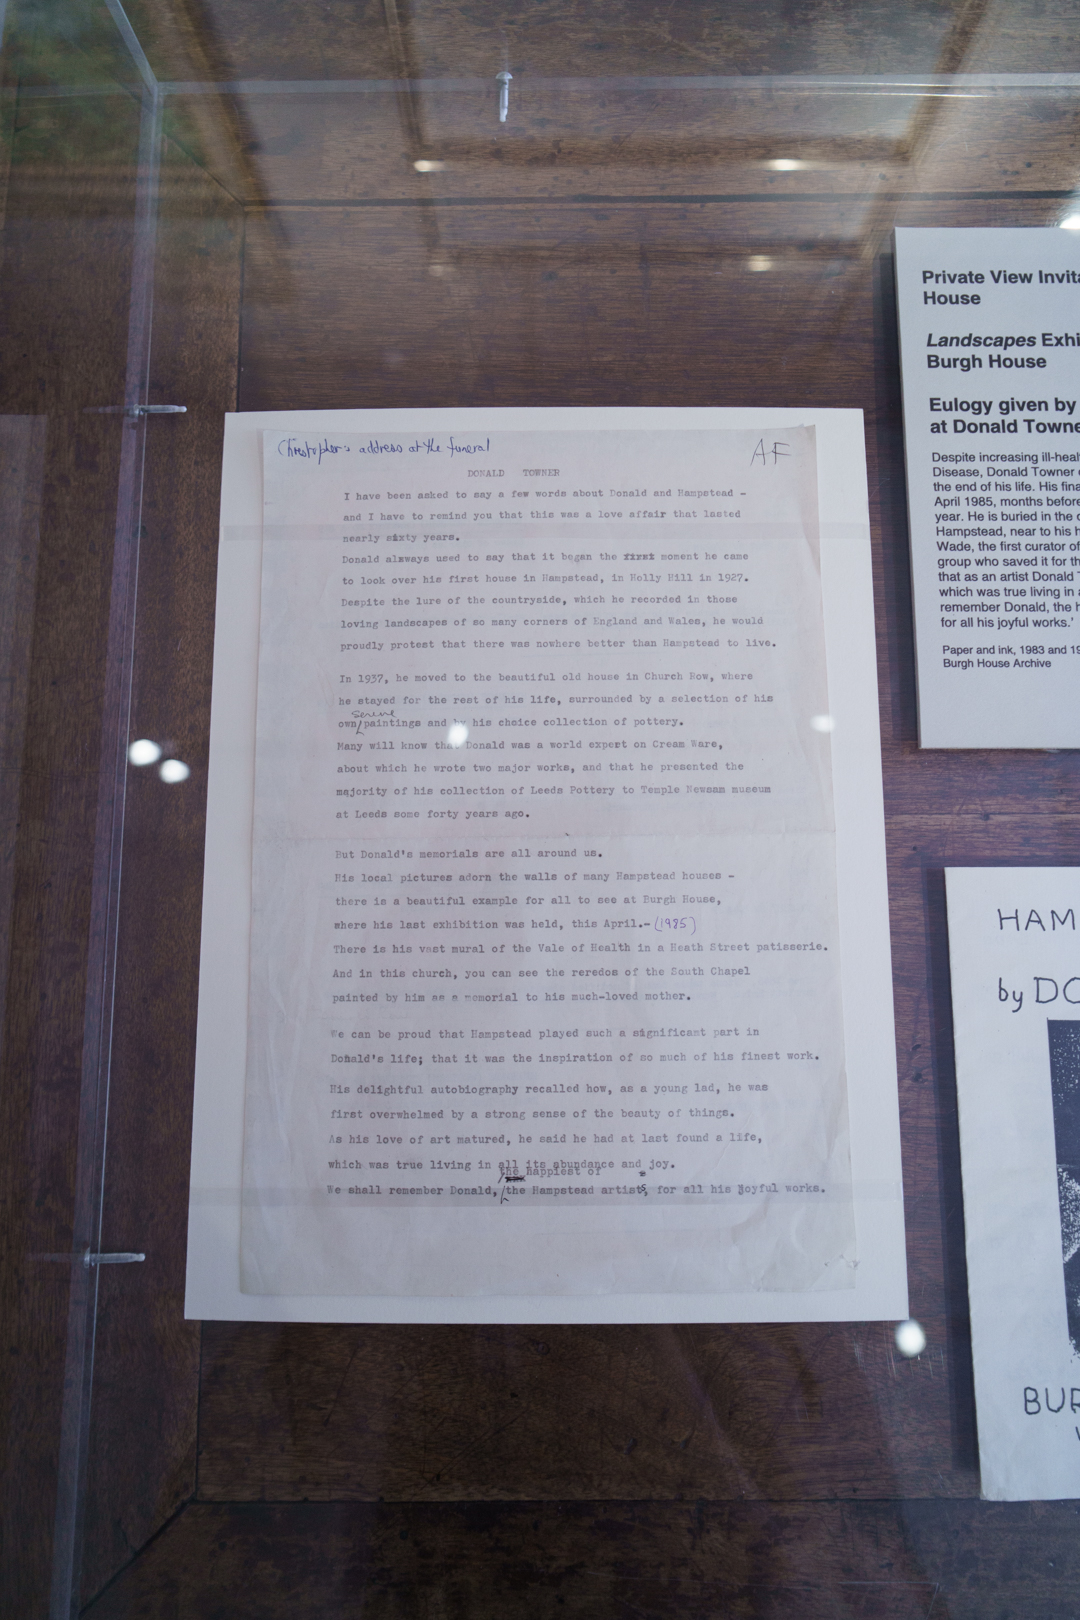 Christopher's address at the funeral
AF
DONALD TOWNER
I have been asked to say a few words about Donald and Hampstead -
and I have to remind you that this was a love affair that lasted
nearly sixty years.
Donald always used to say that it began the first moment he came
to look over his first house in Hampstead, in Holly Hill in 1927.
Despite the lure of the countryside, which he recorded in those
loving landscapes of so many corners of England and Wales, he would
proudly protest that there was nowhere better than Hampstead to live.
In 1937, he moved to the beautiful old house in Church Row, where
he stayed for the rest of his life, surrounded by a selection of his
serene
own paintings and by his choice collection of pottery.
Many will know that Donald was a world expert on Cream Ware,
about which he wrote two major works, and that he presented the
majority of his collection of Leeds Pottery to Temple Newsam museum
at Leeds some forty years ago.
But Donald's memorials are all around us.
His local pictures adorn the walls of many Hampstead houses -
there is a beautiful example for all to see at Burgh House,
where his last exhibition was held, this April.- (1985)
There is his vast mural of the Vale of Health in a Heath Street patisserie.
And in this church, you can see the reredos of the South Chapel
painted by him as a memorial to his much-loved mother.
We can be proud that Hampstead played such a significant part in
Donald's life; that it was the inspiration of so much of his finest work.
His delightful autobiography recalled how, as a young lad, he was
first overwhelmed by a strong sense of the beauty of things.
As his love of art matured, he said he had at last found a life,
which was true living in all its abundance and joy.
the happiest of
We shall remember Donald, the Hampstead artists, for all his joyful works.
Private View Invita
House
Landscapes Exhi
Burgh House
Eulogy given by
at Donald Towne
Despite increasing ill-heal
Disease, Donald Towner
the end of his life. His fina
April 1985, months before
year. He is buried in the
Hampstead, near to his h
Wade, the first curator of
group who saved it for th
that as an artist Donald
which was true living in
remember Donald, the h
for all his joyful works.'
Paper and ink, 1983 and 19
Burgh House Archive
HAM
by DO
BUR